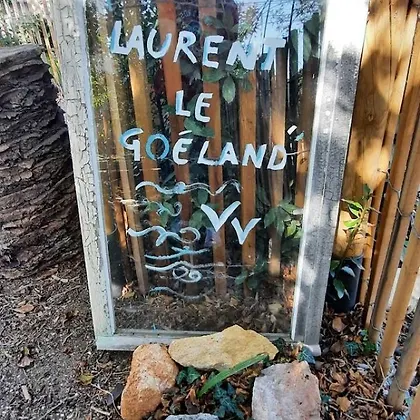 LAURENT
LE
GOÉLAND